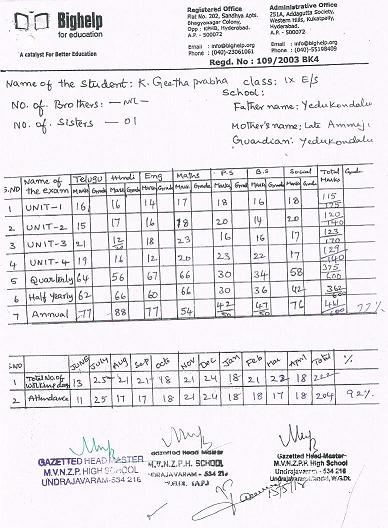 Bighelp
for education
A catalyst For Better Education
Registered Office
Flat No. 202, Sandhya Apts.
Bhagyanagar Colony,
Opp : KPHB, Hyderabad.
A.P. - 500072
Email : info@bighelp.org
Phone : (040)-23061061
Administrative Office
251A, Addagutta Society,
Western Hills, Kukatpally,
Hyderabad.
A.P. - 500072
Email : info@bighelp.org
Phone : (040)-55198409
Regd. No : 109/2003 BK4
Name of the Student: K. Geetha prabha class: IX E/S
School:
NO. of Brothers: - NIL -
Father name: Yedukondalu
NO. of Sisters - 01
Mother's name; Late Ammeji
Guardian: Yedukondalu
S.NO Name of the exam Telugu Hindi Eng Maths P.S B.S Social Total Marks Grade
Marks Grade Marks Grade Marks Grade Marks Grade Marks Grade Marks Grade Marks Grade
1 UNIT-1 16 16 14 17 18 16 18 115/175
2 UNIT-2 15 17 16 18 20 14 20 120/140
3 UNIT-3 21 12/50 18 23 16 16 17 123/170
4 UNIT-4 19 16 12 20 23 22 17 129/140
5 Quarterly 64 56 67 66 30 34 58 375/600
6 Half Yearly 62 66 60 66 30 36 42 362/600
7 Annual 77 88 77 54 42/50 47/50 76 461/600 77%
S.NO JUNE July Aug Sep Octo Nov Dec Jan Feb March April Total %
1 Total No. of Working days 13 25 21 21 18 21 24 18 21 22 18 222
2 Attendance 11 25 17 17 18 21 24 18 18 17 18 204 92%
GAZETTED HEAD MASTER
M.V.N.Z.P. HIGH SCHOOL
UNDRAJAVARAM-534 216
Gazetted Head Master
M.V.N.Z.P.H. SCHOOL
UNDRAJAVARAM - 534 216
Gazetted Head-Master
M.V.N.Z.P.P. High School
Undrajavaram-534 216